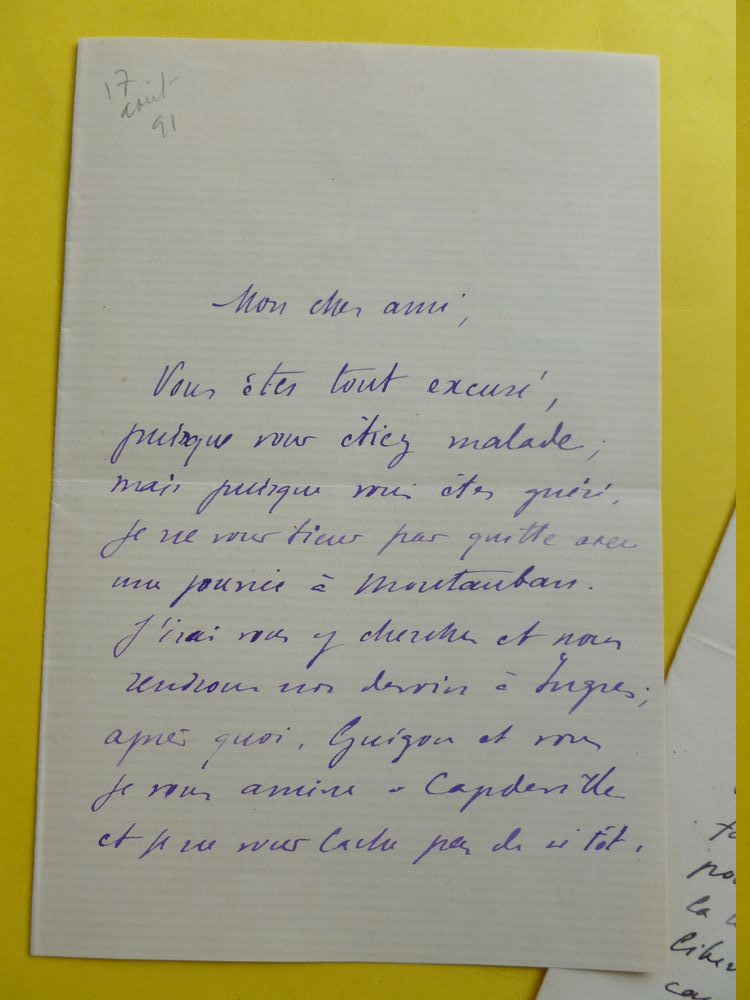 17
août
91
Mon cher ami,
Vous êtes tout excusé,
puisque vous étiez malade ;
mais puisque vous êtes guéri,
je ne vous tiens pas quitte avec
une journée à Montauban.
J'irai vous y chercher et nous
rendrons nos devoirs à Ingres ;
après quoi, Guigou et vous
je vous amène à Capdeville
et je ne vous lache pas de si tôt.
po
la
liber